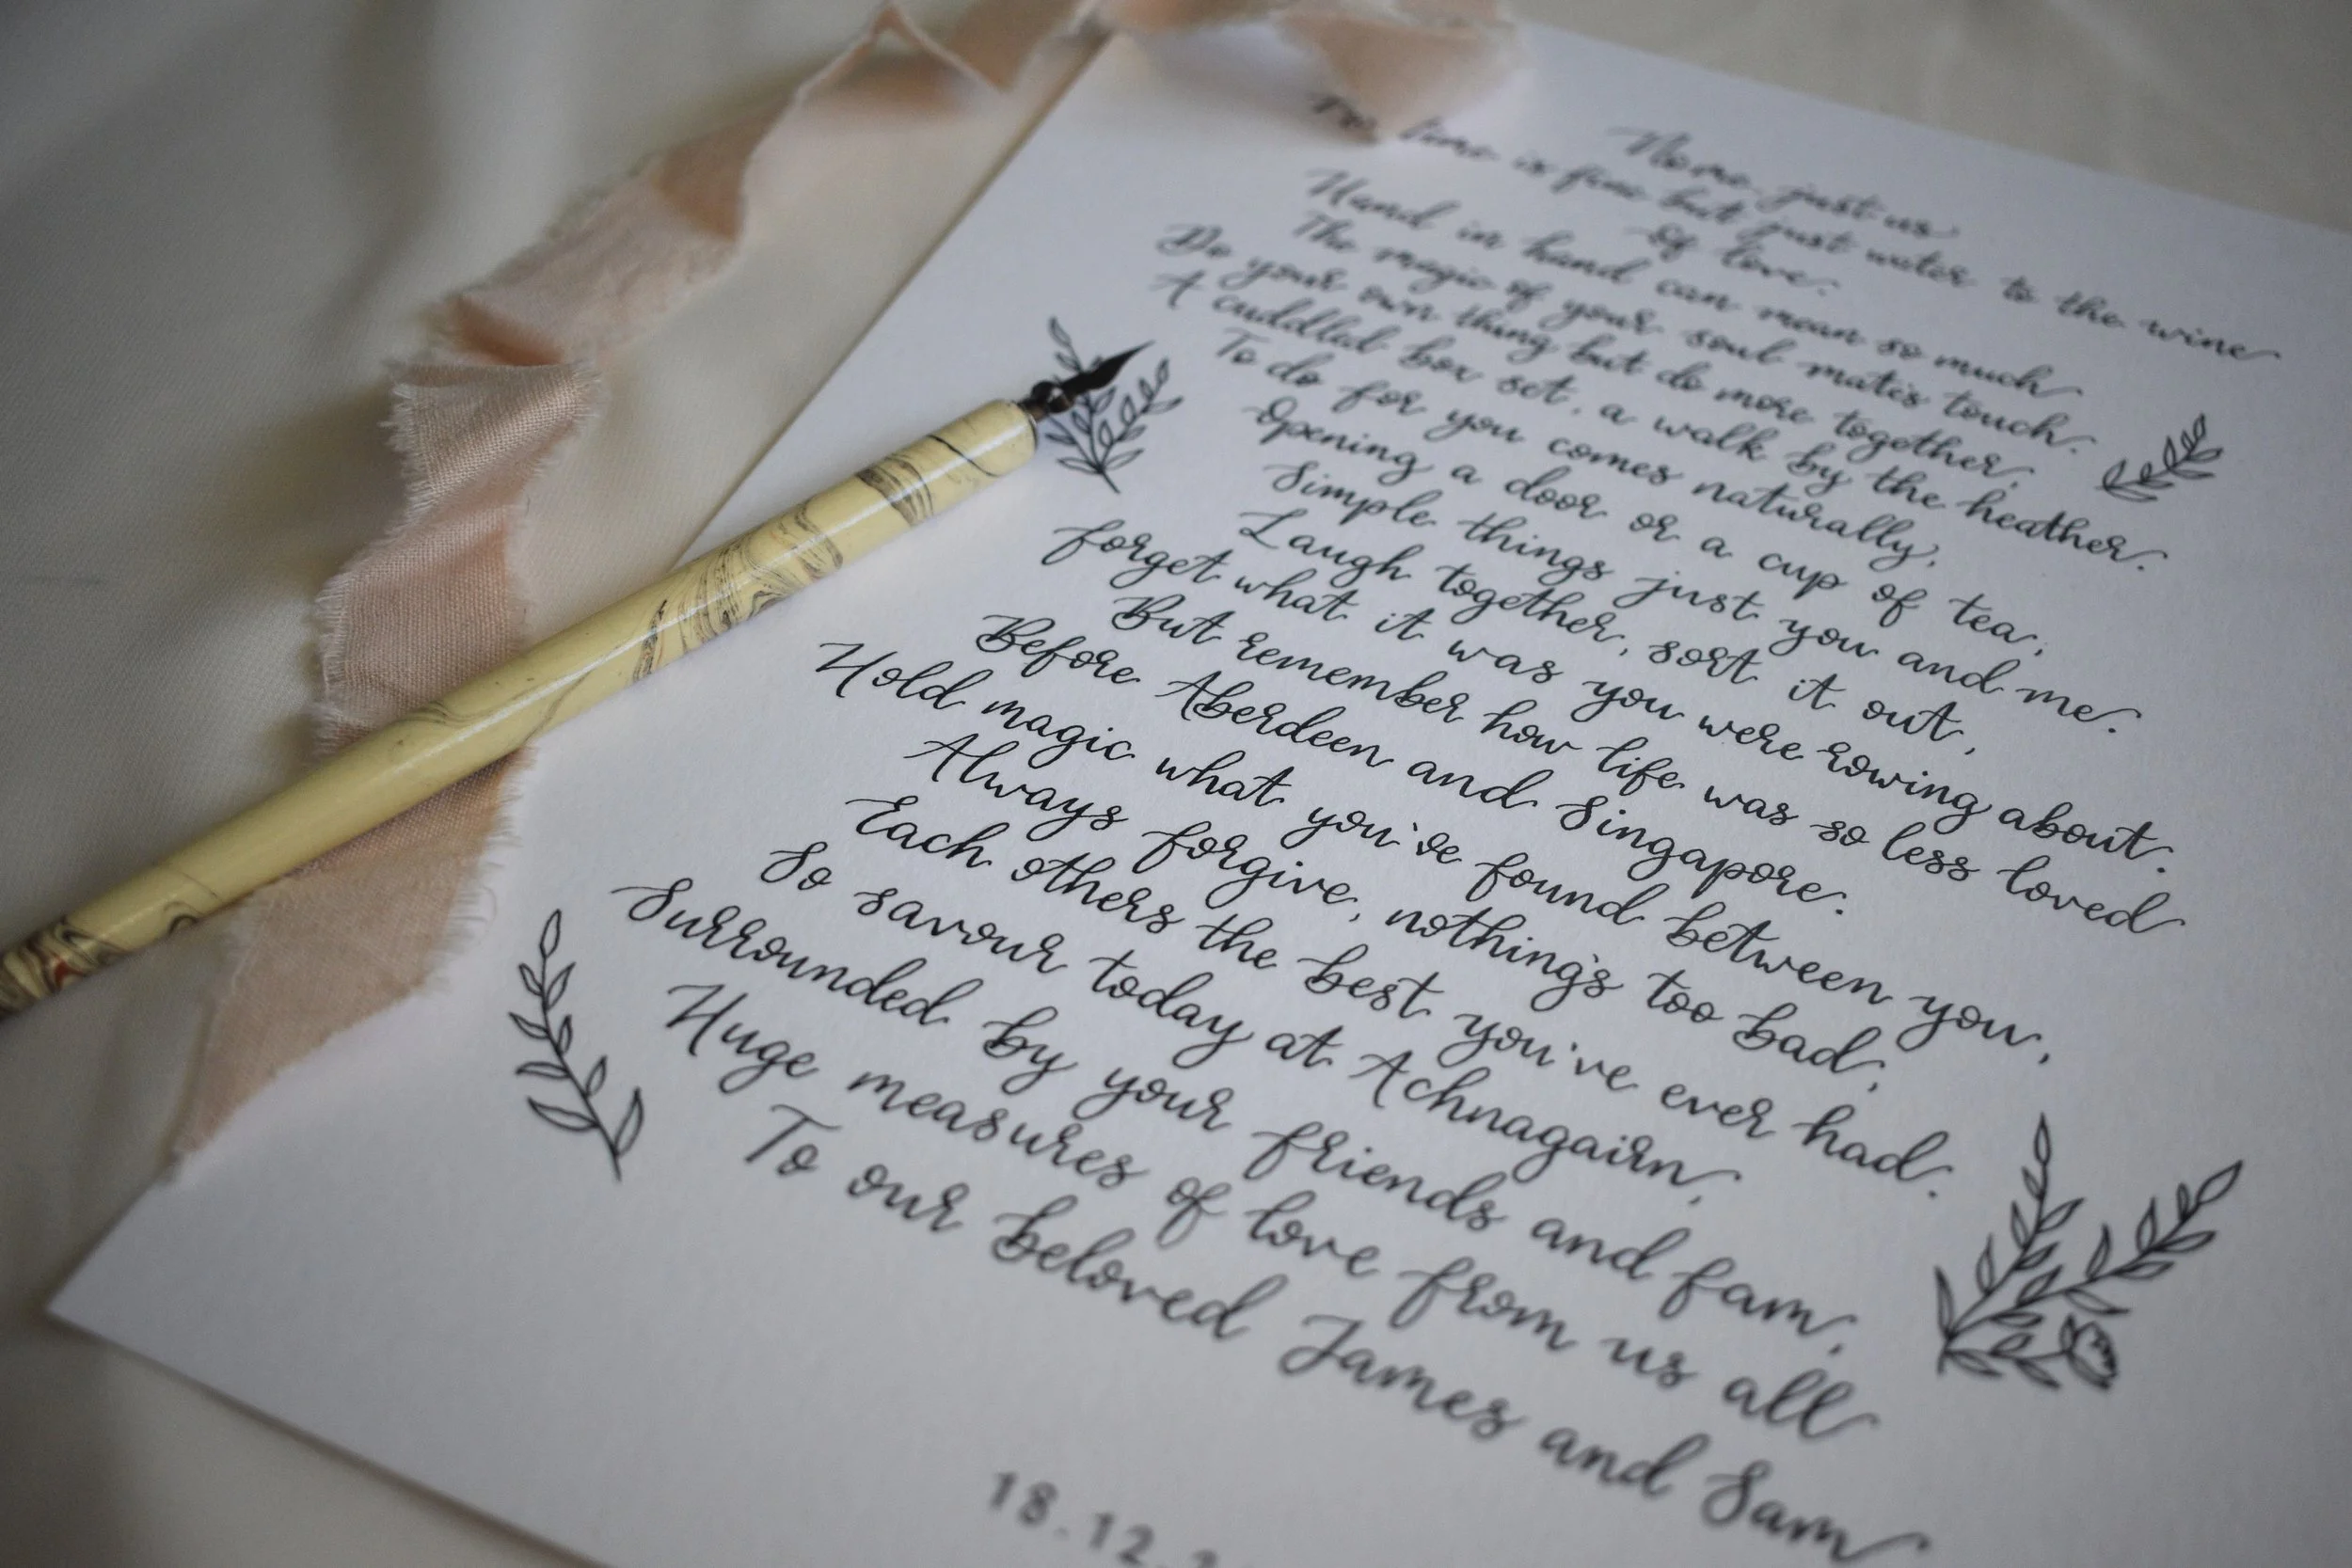 just us
time is fine but just water to the wine
of love.
Hand in hand can mean so much
The magic of your soul mates touch.
Do your own thing but do more together,
A cuddled box set, a walk by the heather.
To do for you comes naturally,
Opening a door or a cup of tea,
Simple things just you and me.
Laugh together, sort it out,
Forget what it was you were rowing about.
But remember how life was so less loved
Before Aberdeen and Singapore.
Hold magic what you've found between you,
Always forgive, nothing's too bad,
Each others the best you've ever had.
So savour today at Achnagairn,
Surrounded by your friends and fam,
Huge measures of love from us all
To our beloved James and Sam
18.12.